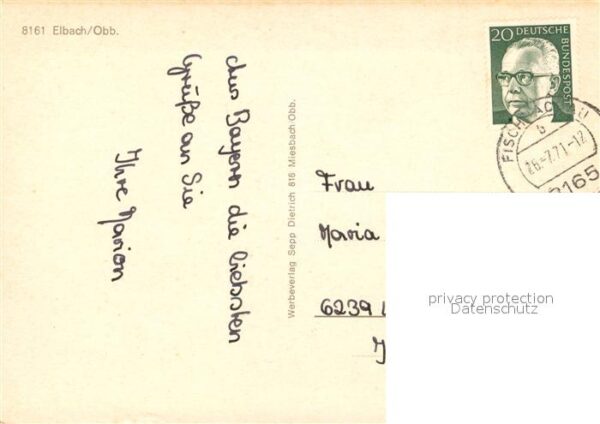 8161 Elbach/Obb.
Aus Bayern die liebsten
Grüße an Sie
Ihre Marion
Werbeverlag Sepp Dietrich 816 Miesbach/Obb.
20 DEUTSCHE
BUNDESPOST
FISCHBACHAU
b
26.-7.71-12
8165
Frau
Maria
6239
privacy protection
Datenschutz